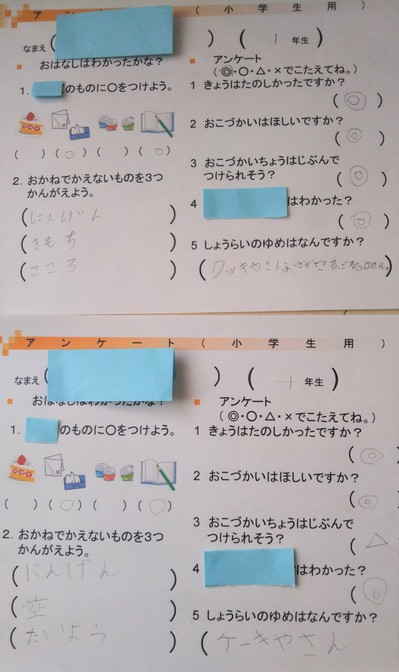 アンケート（小学生用）
なまえ（ ）（1年生）
おはなしはわかったかな？
1. のものに○をつけよう。
（ ）（○）（ ）（○）
2. おかねでかえないものを3つ
かんがえよう。
（にんげん）
（きもち）
（こころ）
アンケート
（◎・○・△・×でこたえてね。）
1 きょうはたのしかったですか？
（◎）
2 おこづかいはほしいですか？
（◎）
3 おこづかいちょうはじぶんで
つけられそう？
（◎）
4 はわかった？
（◎）
5 しょうらいのゆめはなんですか？
アンケート（小学生用）
なまえ（ ）（一年生）
おはなしはわかったかな？
1. のものに○をつけよう。
（ ）（○）（ ）（○）
2. おかねでかえないものを3つ
かんがえよう。
（にんげん）
（空）
（たいよう）
アンケート
（◎・○・△・×でこたえてね。）
1 きょうはたのしかったですか？
（◎）
2 おこづかいはほしいですか？
（◎）
3 おこづかいちょうはじぶんで
つけられそう？
（△）
4 はわかった？
（◎）
5 しょうらいのゆめはなんですか？
（ケーキやさん）